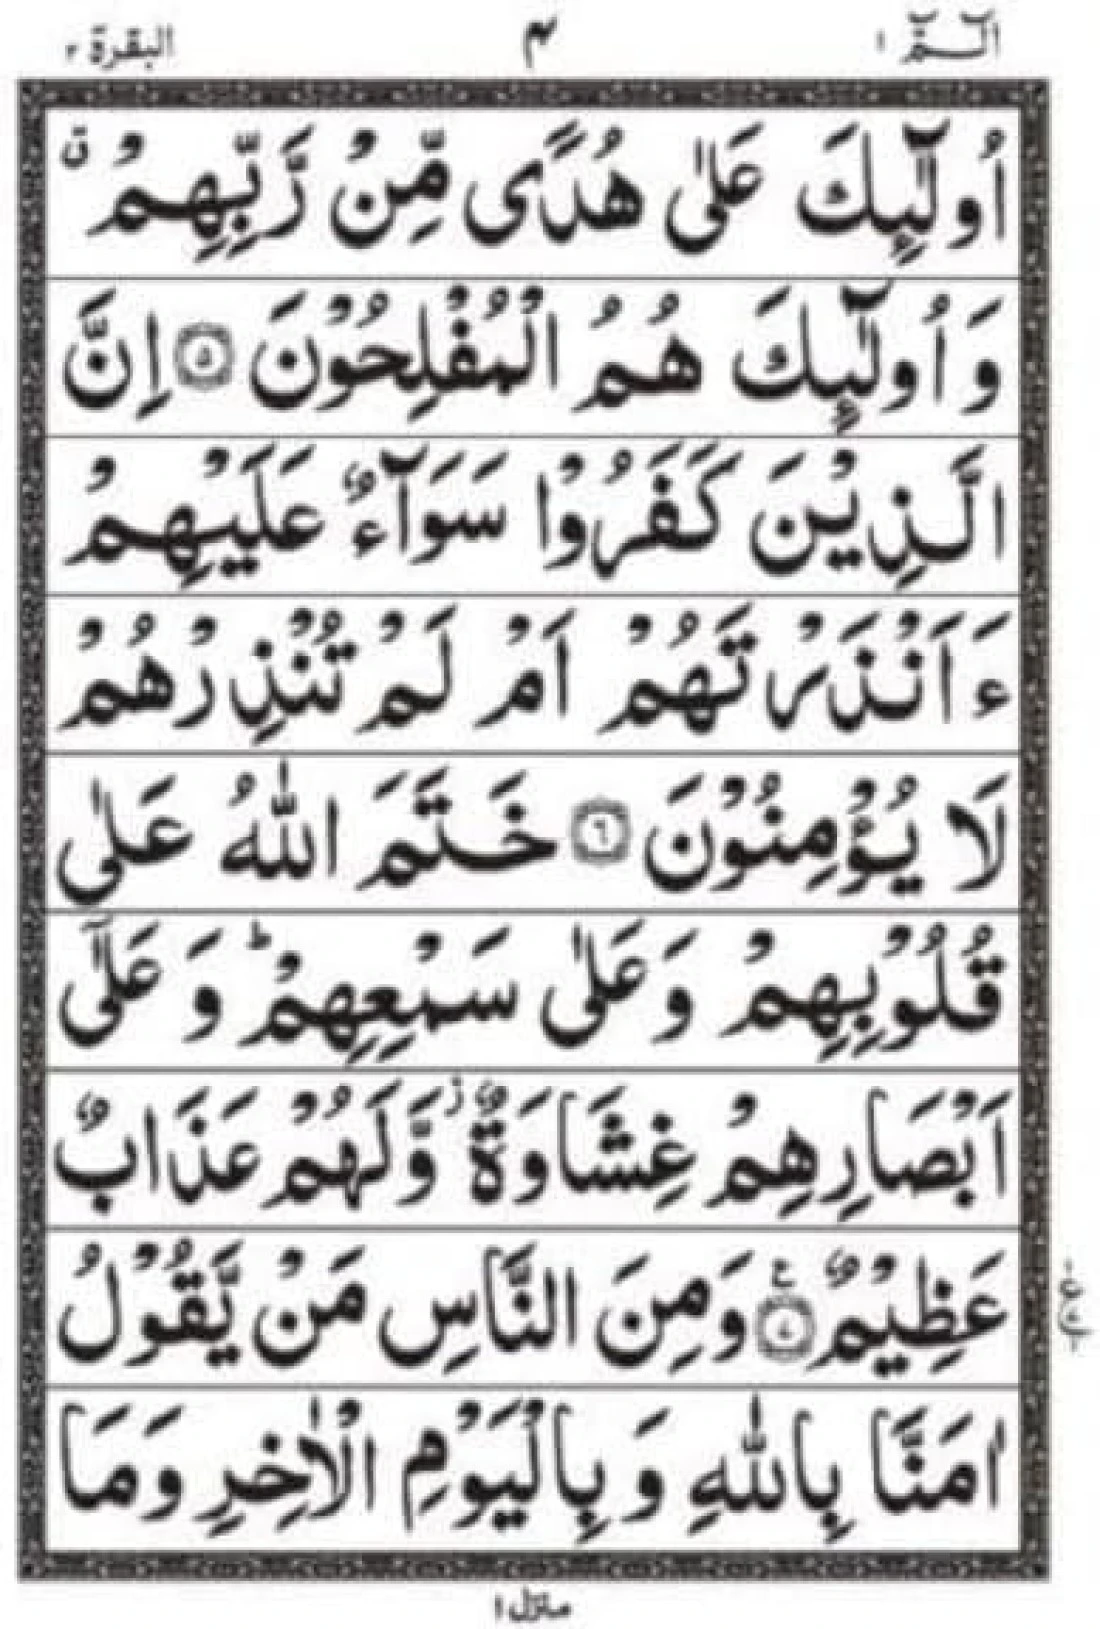 الٓـمّٓ ١ ٤ البقرة ٢
اُولٰٓئِكَ عَلٰى هُدًى مِّنْ رَّبِّهِمْ ۗ
وَ اُولٰٓئِكَ هُمُ الْمُفْلِحُوْنَ ۝٥ اِنَّ
الَّذِيْنَ كَفَرُوْا سَوَآءٌ عَلَيْهِمْ
ءَاَنْذَرْتَهُمْ اَمْ لَمْ تُنْذِرْهُمْ
لَا يُؤْمِنُوْنَ ۝٦ خَتَمَ اللّٰهُ عَلٰى
قُلُوْبِهِمْ وَعَلٰى سَمْعِهِمْ ؕ وَ عَلٰٓى
اَبْصَارِهِمْ غِشَاوَةٌ ؗ وَّلَهُمْ عَذَابٌ
عَظِيْمٌ ۝٧ ع وَمِنَ النَّاسِ مَنْ يَّقُوْلُ
اٰمَنَّا بِاللّٰهِ وَ بِالْيَوْمِ الْاٰخِرِ وَمَا
منزل ١